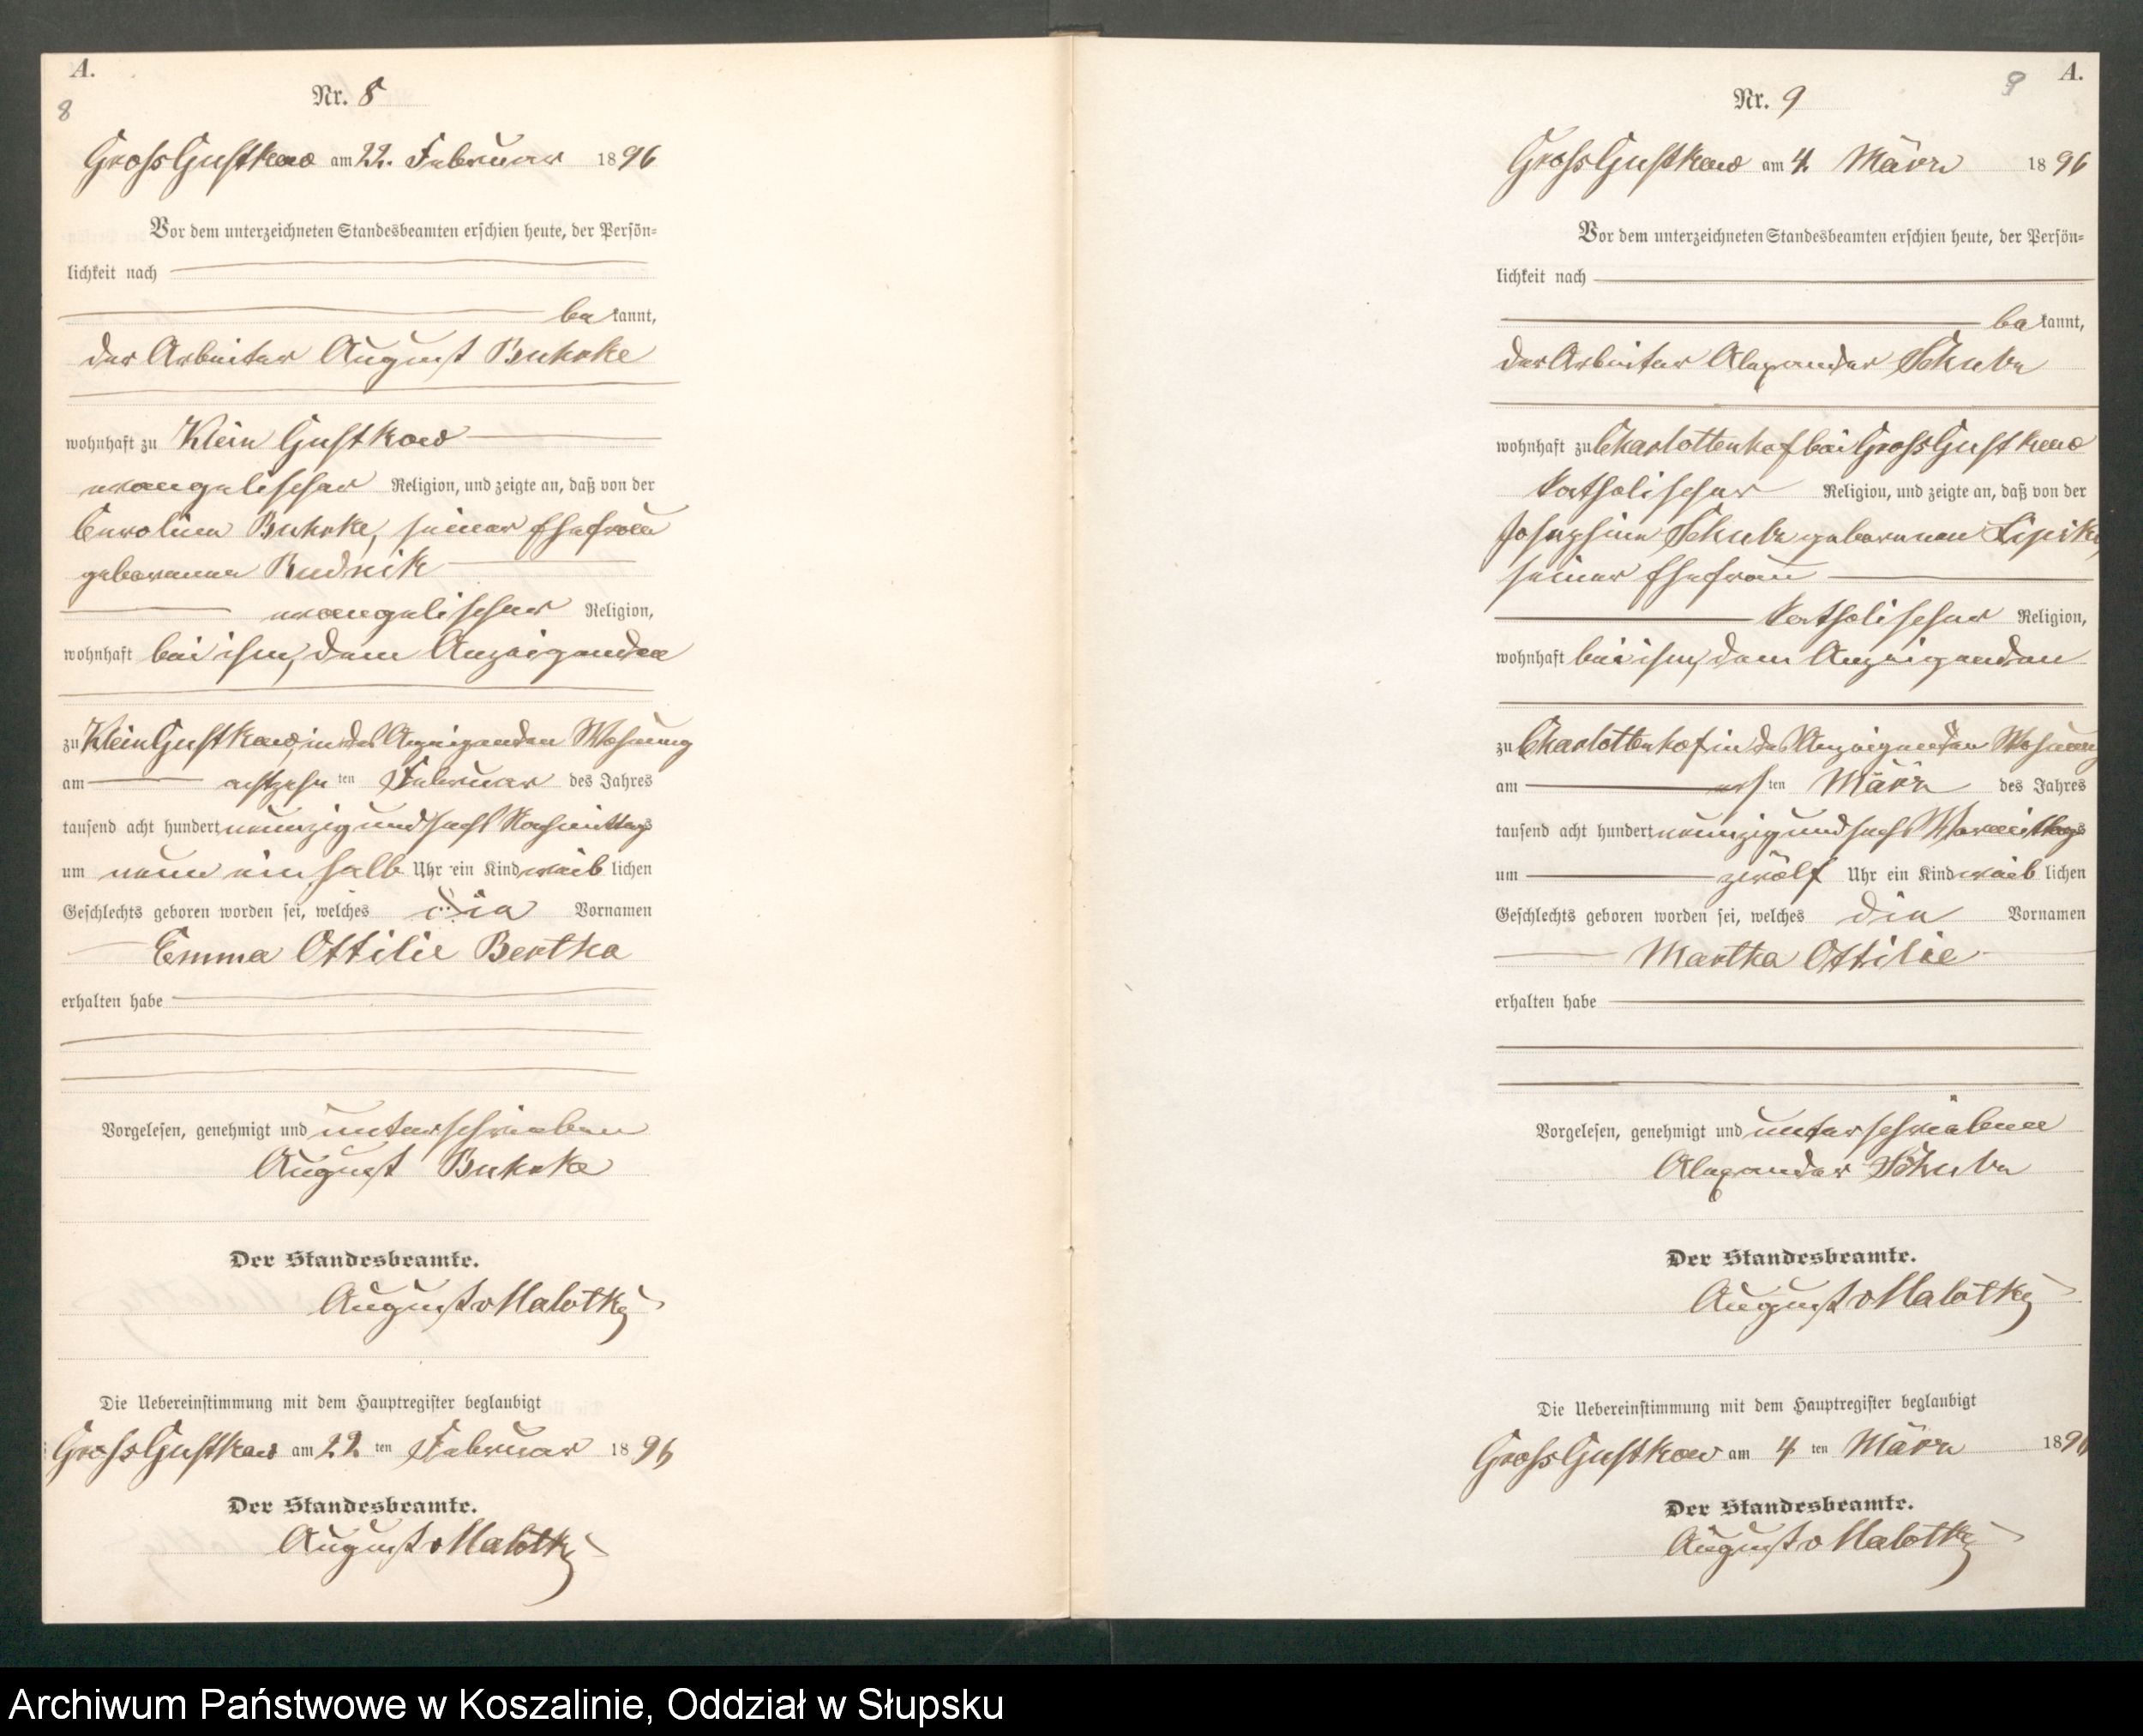 A.
8
Nr. 8
Gross Gustkow am 22. Februar 1896
Vor dem unterzeichneten Standesbeamten erschien heute, der Persön-
lichkeit nach
be kannt,
der Arbeiter August Buhrke
wohnhaft zu Klein Gustkow
evangelischer Religion, und zeigte an, daß von der
Caroline Buhrke, seiner Ehefrau
geborenen Rudnik
evangelischer Religion,
wohnhaft bei ihm, dem Anzeigenden
zu Klein Gustkow, in des Anzeigenden Wohnung
am achtzehn ten Februar des Jahres
tausend acht hundert neunzig und sechs Nachmittags
um neun ein halb Uhr ein Kind weib lichen
Geschlechts geboren worden sei, welches die Vornamen
Emma Ottilie Bertha
erhalten habe
Vorgelesen, genehmigt und unterschrieben
August Buhrke
Der Standesbeamte.
August v Malotky
Die Uebereinstimmung mit dem Hauptregister beglaubigt
Gross Gustkow am 22 ten Februar 1896
Der Standesbeamte.
August v Malotky
A.
9
Nr. 9
Gross Gustkow am 4. März 1896
Vor dem unterzeichneten Standesbeamten erschien heute, der Persön-
lichkeit nach
be kannt,
der Arbeiter Alexander
wohnhaft zu Charlottenhof bei Gross Gustkow
katholischer Religion, und zeigte an, daß von der
Josephine geborenen
seiner Ehefrau
katholischer Religion,
wohnhaft bei ihm, dem Anzeigenden
zu Charlottenhof in des Anzeigenden Wohnung
am ers ten März des Jahres
tausend acht hundert neunzig und sechs Vormittags
um zwölf Uhr ein Kind weib lichen
Geschlechts geboren worden sei, welches die Vornamen
Martha Ottilie
erhalten habe
Vorgelesen, genehmigt und unterschrieben
Alexander
Der Standesbeamte.
August v Malotky
Die Uebereinstimmung mit dem Hauptregister beglaubigt
Gross Gustkow am 4 ten März 1896
Der Standesbeamte.
August v Malotky
Archiwum Państwowe w Koszalinie, Oddział w Słupsku